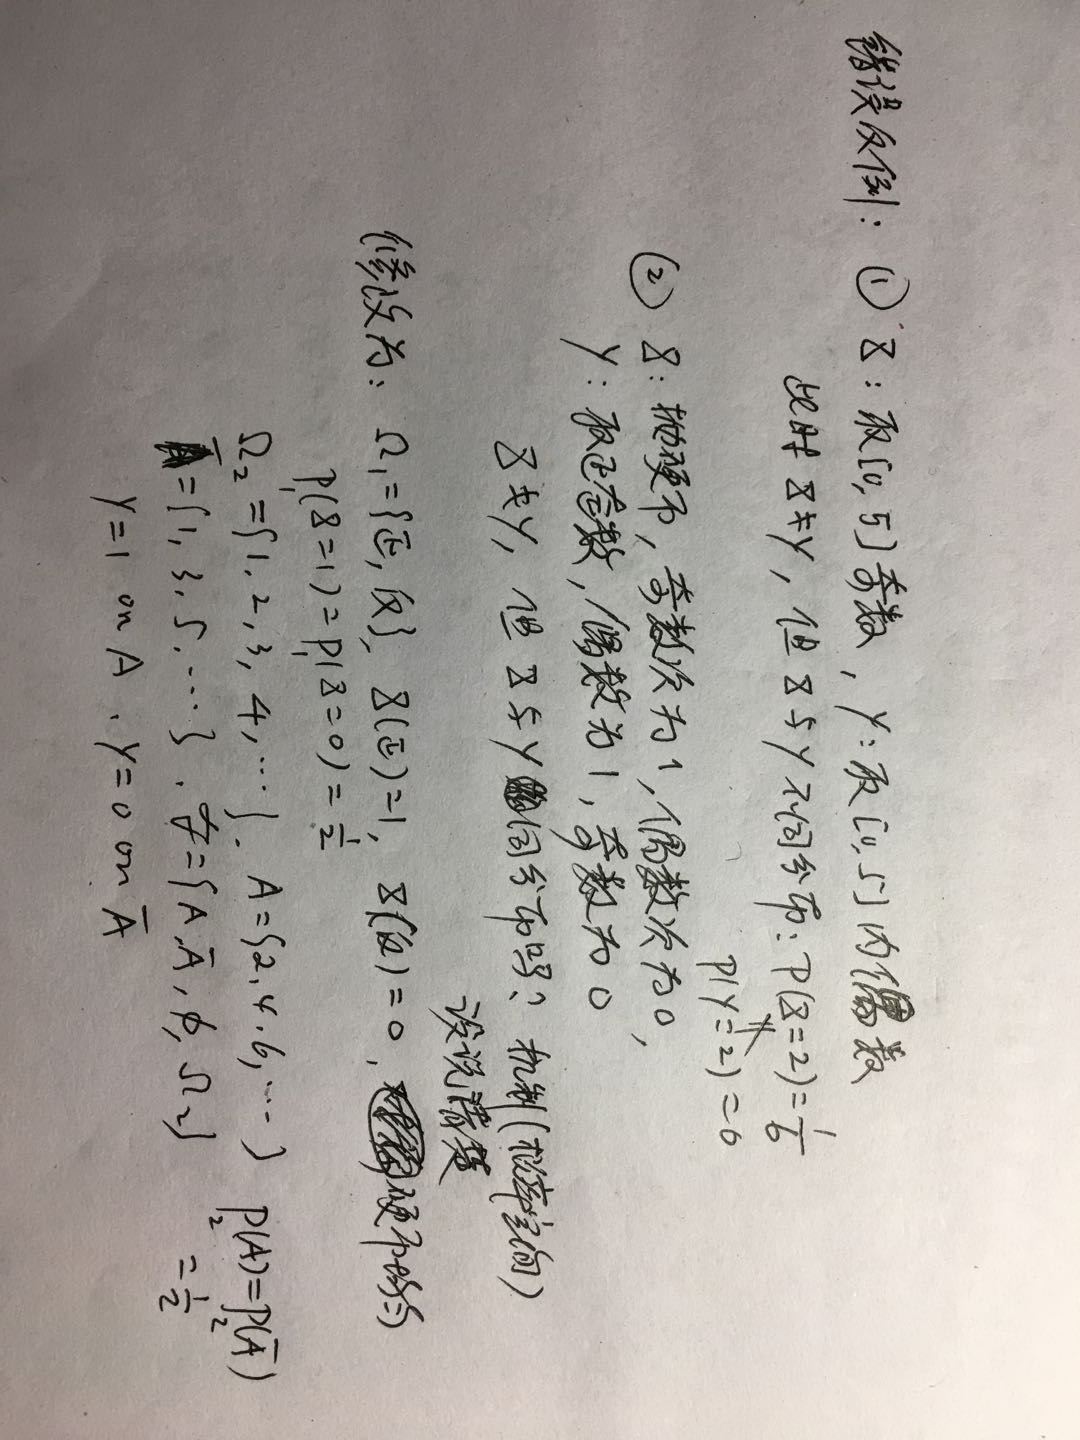 错误反例: ① X: 取[0,5]奇数, Y: 取[0,5]内偶数
此时X≠Y, 但X与Y不同分布: P(X=2)=1/6
P(Y=2)=0
② X: 抛硬币, 奇数次为1, 偶数次为0,
Y: 取正整数, 偶数为1, 奇数为0
X≠Y, 但X与Y同分布吗? 机制(概率空间)
没说清楚
修改为: Ω₁={正,反}, X(正)=1, X(反)=0, 硬币均匀
P₁(X=1)=P₁(X=0)=1/2
Ω₂={1,2,3,4,…}. A={2,4,6,…} P₂(A)=P₂(Ā)
=1/2
Ā={1,3,5,…}. ℱ={A,Ā,φ,Ω₂}
Y=1 on A. Y=0 on Ā